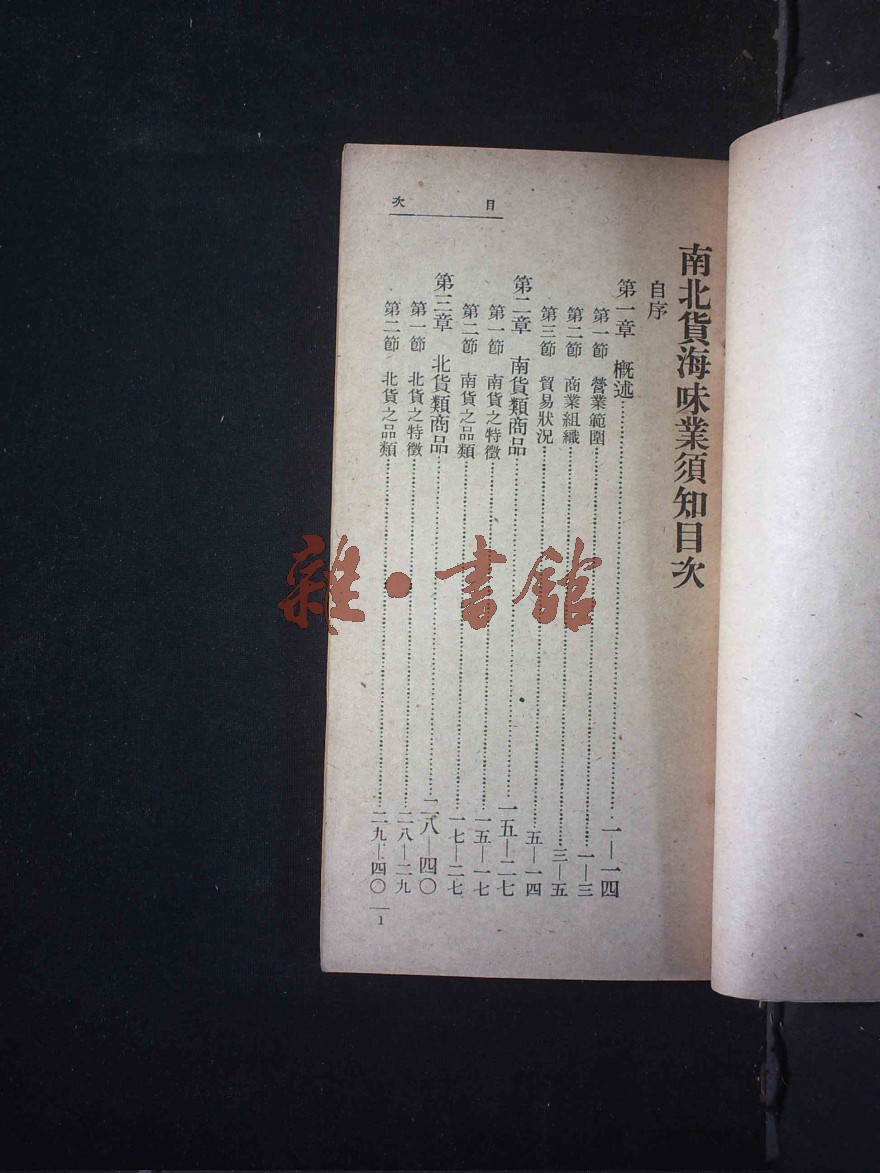 南北貨海味業須知目次
自序
第一章　概述…………一—一四
第一節　營業範圍…………一—三
第二節　商業組織…………三—五
第三節　貿易狀況…………五—一四
第二章　南貨類商品…………一五—二七
第一節　南貨之特徵…………一五—一七
第二節　南貨之品類…………一七—二七
第三章　北貨類商品…………二八—四〇
第一節　北貨之特徵…………二八—二九
第二節　北貨之品類…………二九—四〇
目次
1
雜·書館